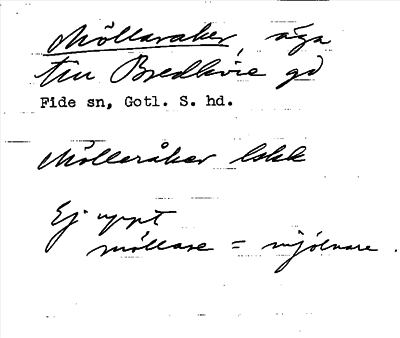 Möllaraker, äga
till Bredkvie gd
Fide sn, Gotl. S. hd.
Mölleråker lskk
Ej uppt
möllare = mjölnare.